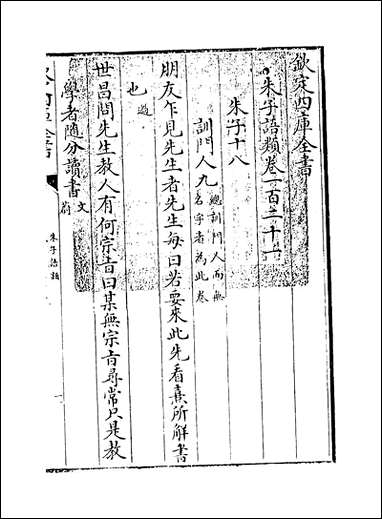 欽定四庫全書
朱子語類卷一百二十一
朱子十八
訓門人九總訓門人而無
名字者為此卷
朋友乍見先生者先生每曰若要來此先看熹所解書
也過
世昌問先生教人有何宗旨曰某無宗旨尋常只是教
學者隨分讀書文
蔚
朱子語類